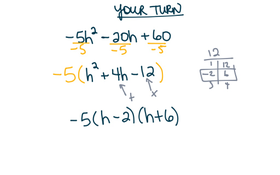 YOUR TURN
-5h² - 20h + 60
-5 -5 -5
-5(h² + 4h - 12)
+ x
-5(h - 2)(h + 6)
12
1 12
-2 6
3 4